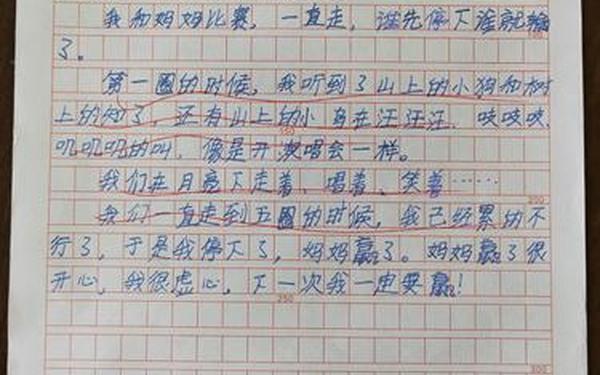 我和妈妈比赛，一直走，谁先停下谁就输
了。
第一圈的时候，我听到了山上的小狗和树
上的知了，还有山上的小鸟在汪汪汪、吱吱吱、
叽叽叽的叫，像是开演唱会一样。
我们在月亮下走着、唱着、笑着……
我们一直走到五圈的时候，我已经累的不
行了，于是我停下了，妈妈赢了。妈妈赢了很
开心，我很虚心，下一次我一定要赢！
150
200
250
300